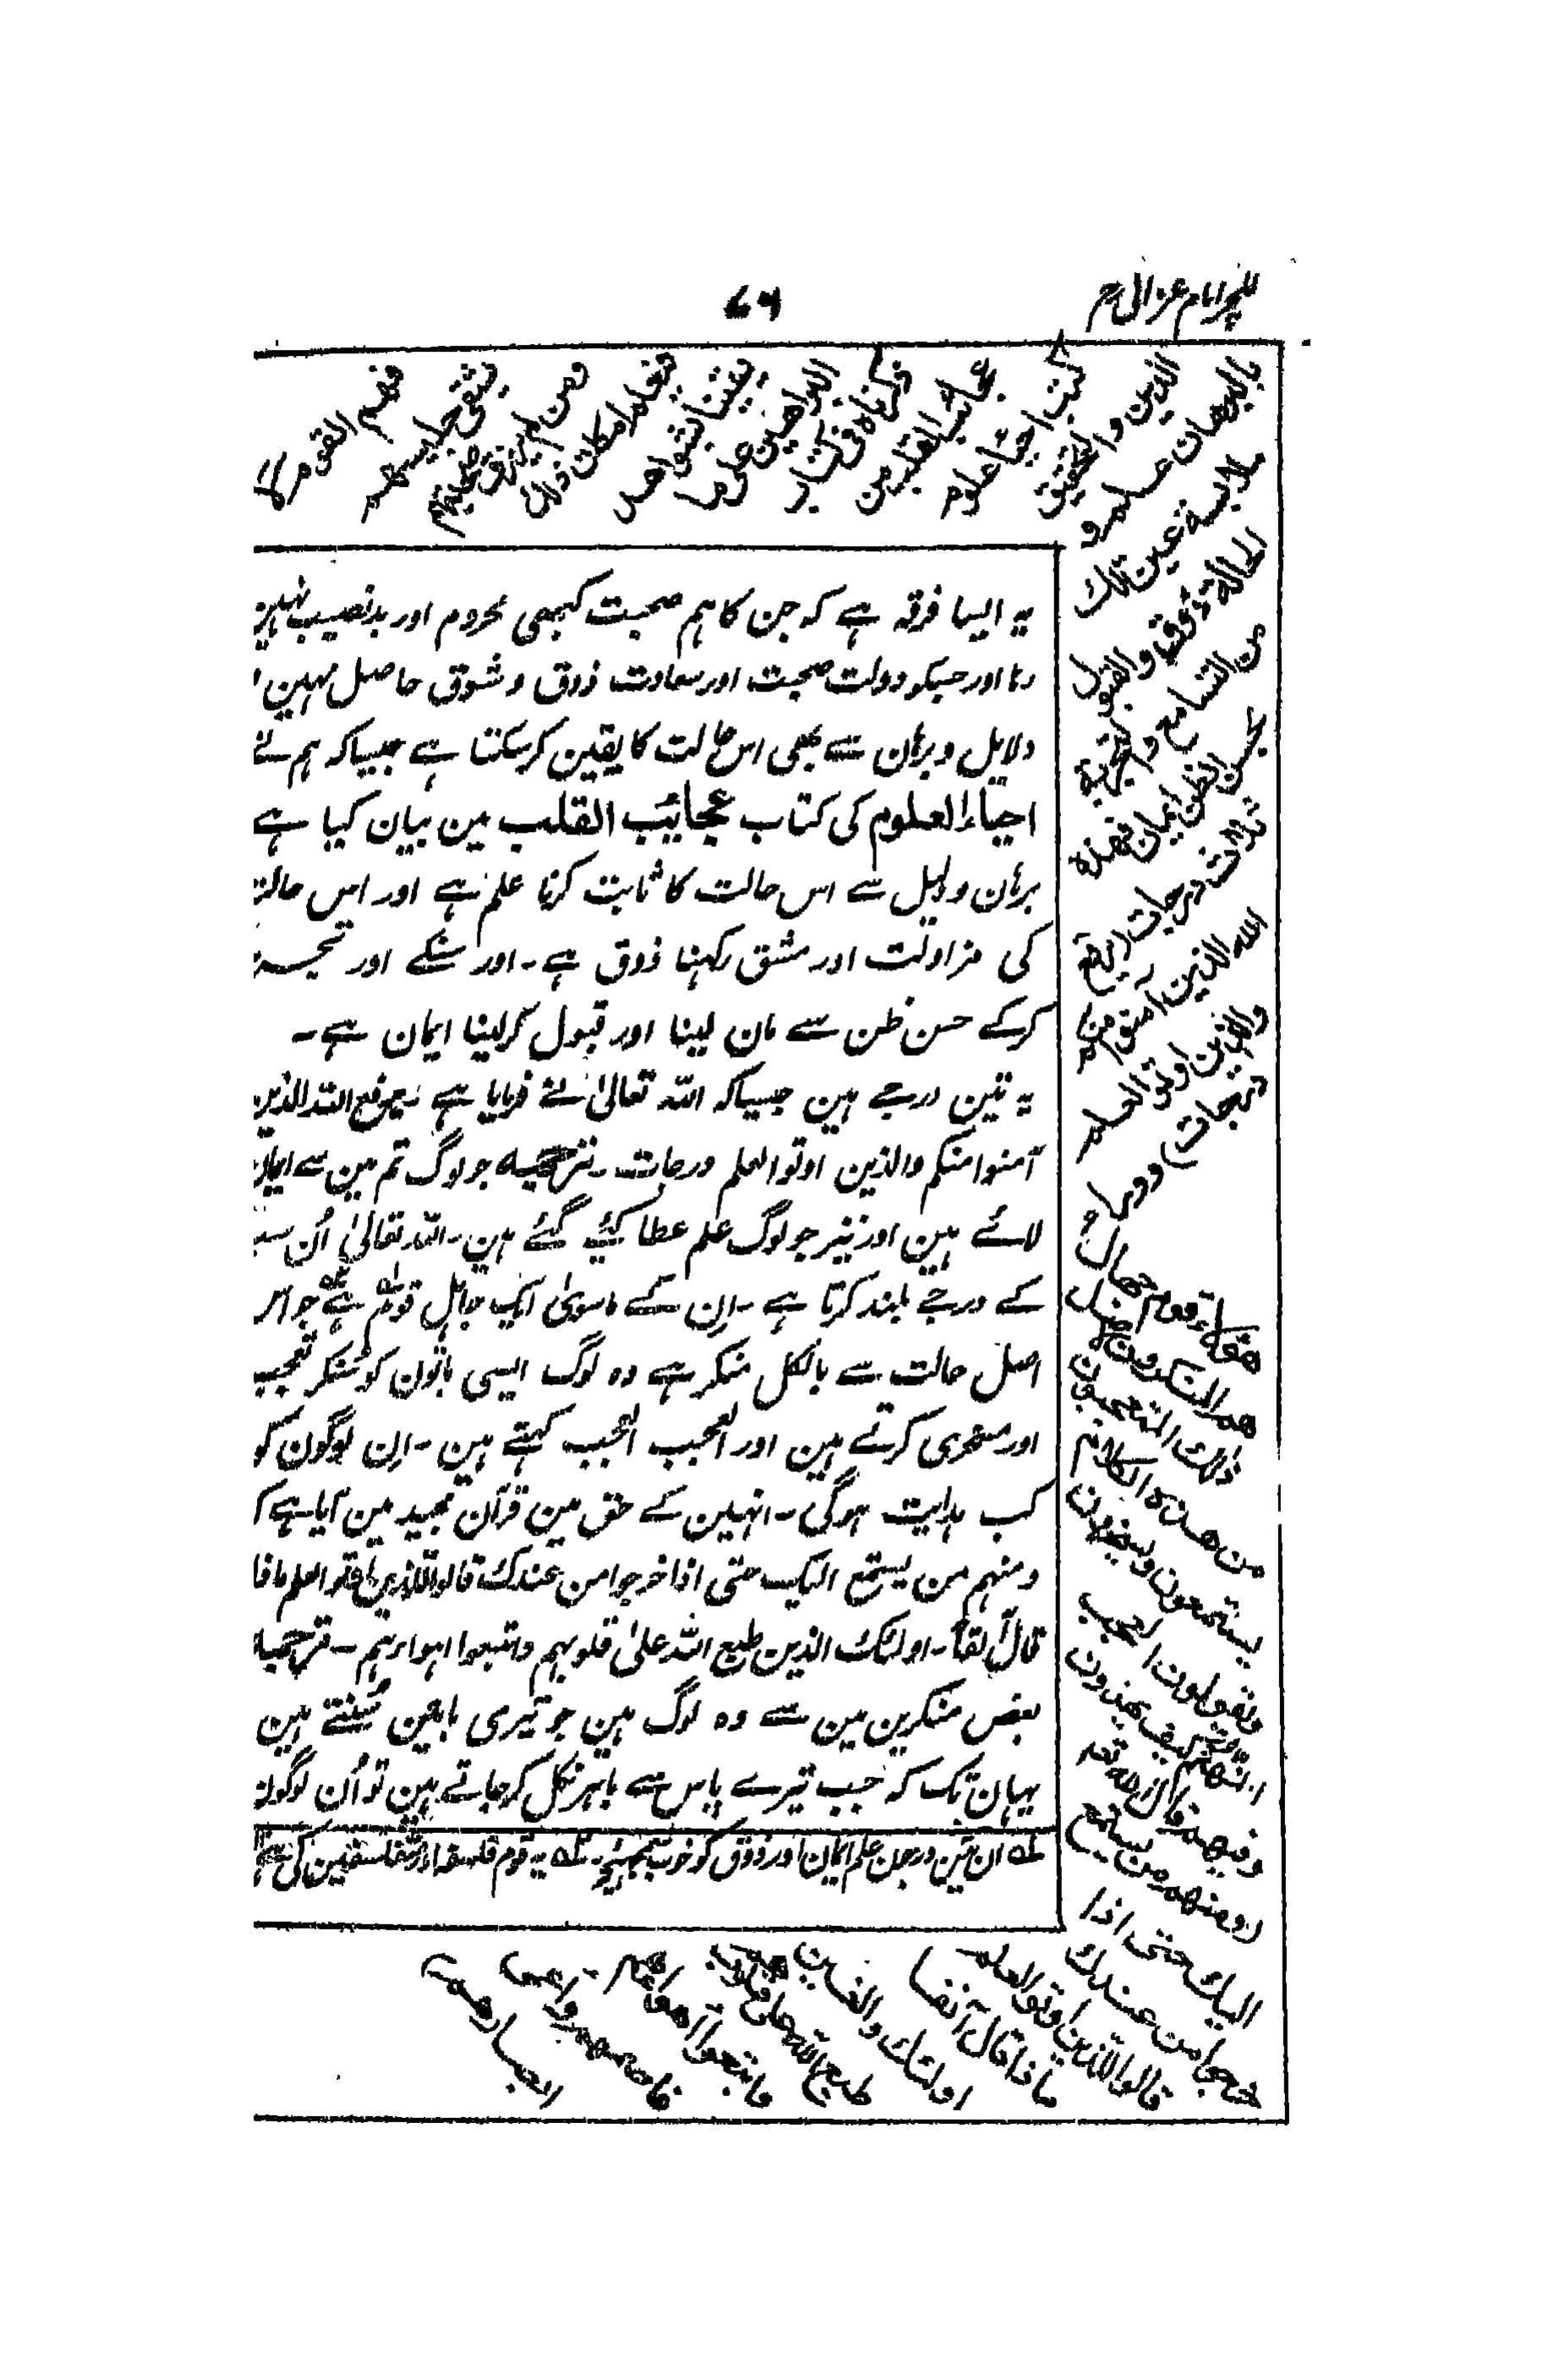 لکچر امام غزالی رح
۷۶
فهم القوم لا
يشقى جليسهم
ومن لم يرزق صحبتهم
فيعلم امكان ذلك
يقينا بشواهد
البراهين على ما
ذكرناه فى كتاب
عجائب القلب من
كتب احياء علوم
الدين والتحقيق
بالبرهان علم و
ملابسة عين تلك
الحالة ذوق والقبول
من التسامع والتجربة
بحسن الظن ايمان فهذه
ثلاث درجات يرفع
الله الذين آمنوا منكم
والذين اوتوا العلم
درجات) ووراء
هؤلاء قوم جهال
هم المنكرون لاصل
ذلك المتعجبون
من هذه الكلام
يستمعون ويسخرون
ويقولون العجب
انهم كيف يهذون
وفيهم قال الله تعا
(ومنهم من يستمع
اليك حتى اذا
خرجوا من عندك
قالوا للذين اوتوا العلم
ماذا قال آنفا
اولئك الذين
طبع الله على قلوبهم
واتبعوا اهواءهم -
فاصمهم واعمى
ابصارهم)
یہ ایسا فرقہ ہے کہ جن کا ہم صحبت کبھی محروم اور بدنصیب نہین
رہا اور جسکو دولت صحبت اور سعادت ذوق و شوق حاصل نہین
دلایل و برہان سے بھی اس حالت کا یقین کرسکتا ہے جیسا کہ ہم نے
احیاء العلوم کی کتاب عجائب القلب مین بیان کیا ہے
برہان و دلیل سے اس حالت کا ثابت کرنا علم ہے اور اس حالت
کی مزاولت اور مشق رکہنا ذوق ہے۔ اور سنکے اور تجربہ
کرکے حسن ظن سے مان لینا اور قبول کرلینا ایمان ہے۔
یہ تین درجے ہین جیسا کہ اللہ تعالیٰ نے فرمایا ہے یرفع اللہ الذین
آمنوا منکم والذین اوتوا العلم درجات۔ ترجمہ جو لوگ تم مین سے ایمان
لائے ہین اور نیز جو لوگ علم عطا کیئے گئے ہین۔ اللہ تعالیٰ اُن سب
کے درجے بلند کرتا ہے۔ اِن کے ماسویٰ ایک جاہل قوم ہے جو اس
اصل حالت سے بالکل منکر ہے وہ لوگ ایسی باتون کو سُنکر تعجب
اور مسخری کرتے ہین اور العجب العجب کہتے ہین۔ اِن لوگون کو
کب ہدایت ہوگی۔ انہین کے حق مین قرآن مجید مین آیا ہے کہ
ومنہم من یستمع الیک حتی اذا خرجوا من عندک قالوا للذین اوتوا العلم ماذا
قال آنفاً۔ اولئک الذین طبع اللہ علیٰ قلوبہم واتبعوا اہواءہم۔ ترجمہ
بعض منکرین مین سے وہ لوگ ہین جو تیری باتین سُنتے ہین
یہان تک کہ جب تیرے پاس سے باہر نکل کر جاتے ہین تو اُن لوگون
لہ ان تین درجن علم ایمان اور ذوق کو خوب سمجھئے۔ ۲ہ یہ قوم فلاسفہ اور متفلسفین کی ہے